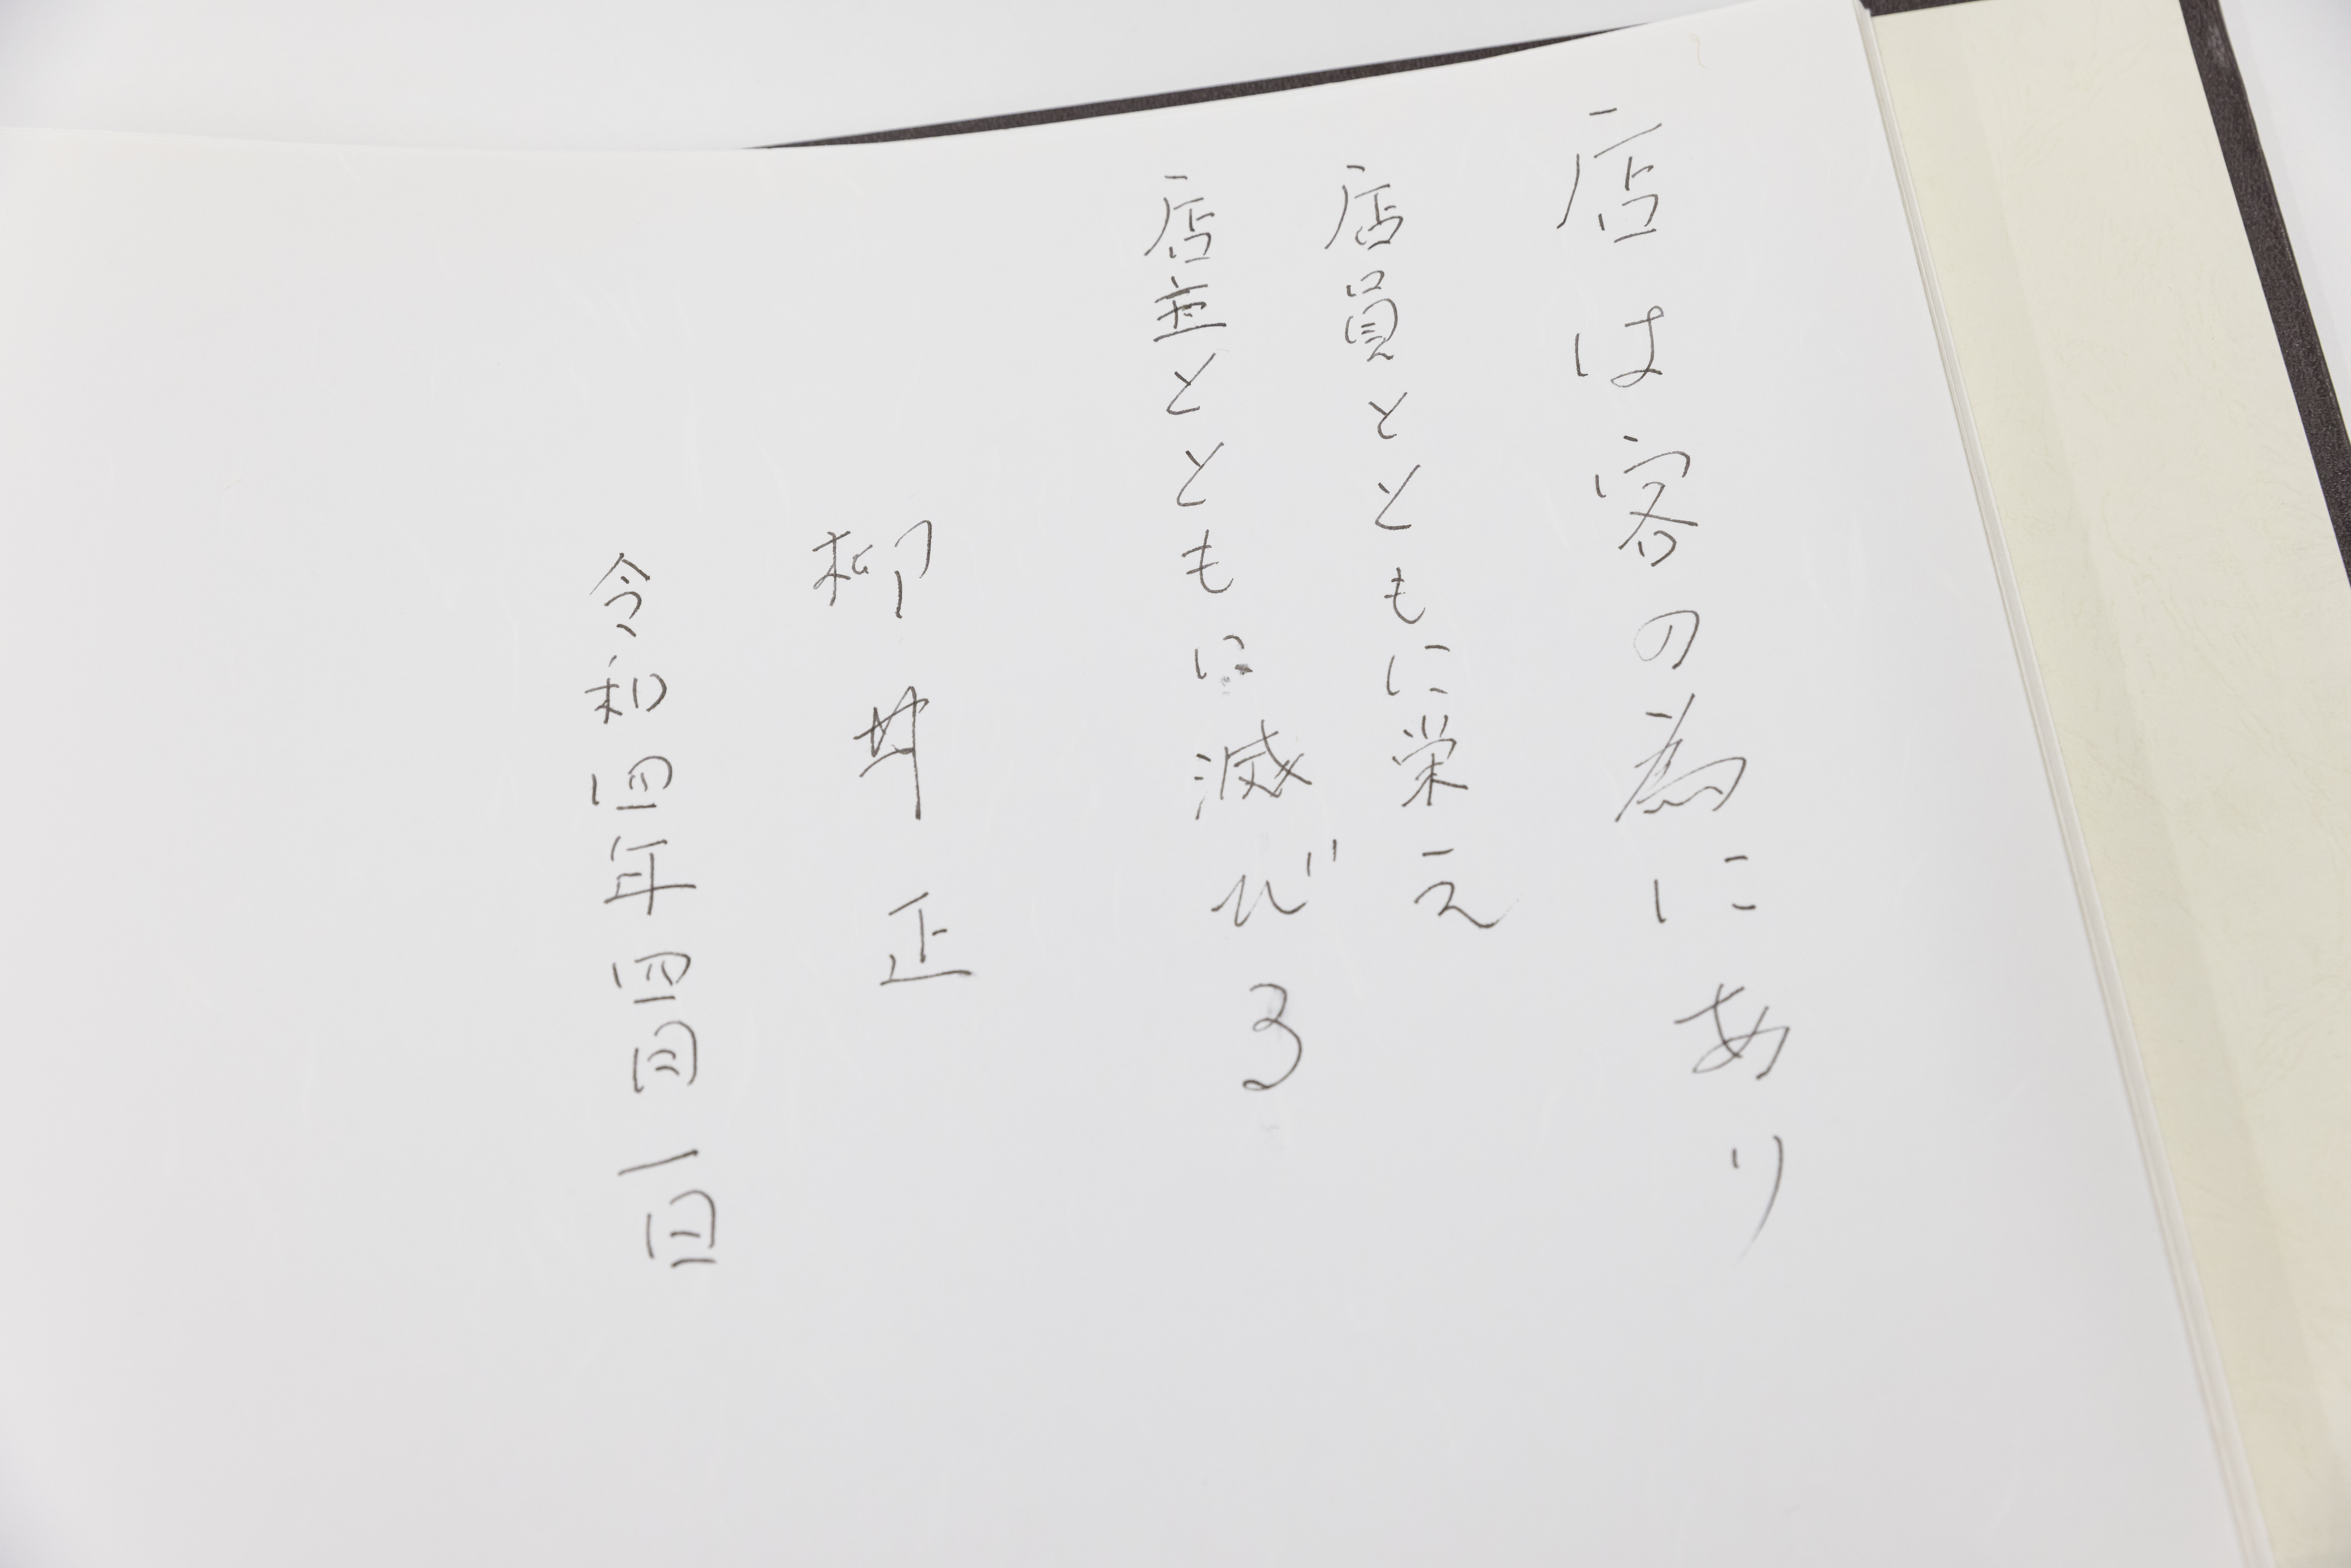 店は客の為にあり
店員とともに栄え
店主とともに滅びる
柳井正
令和四年四月一日